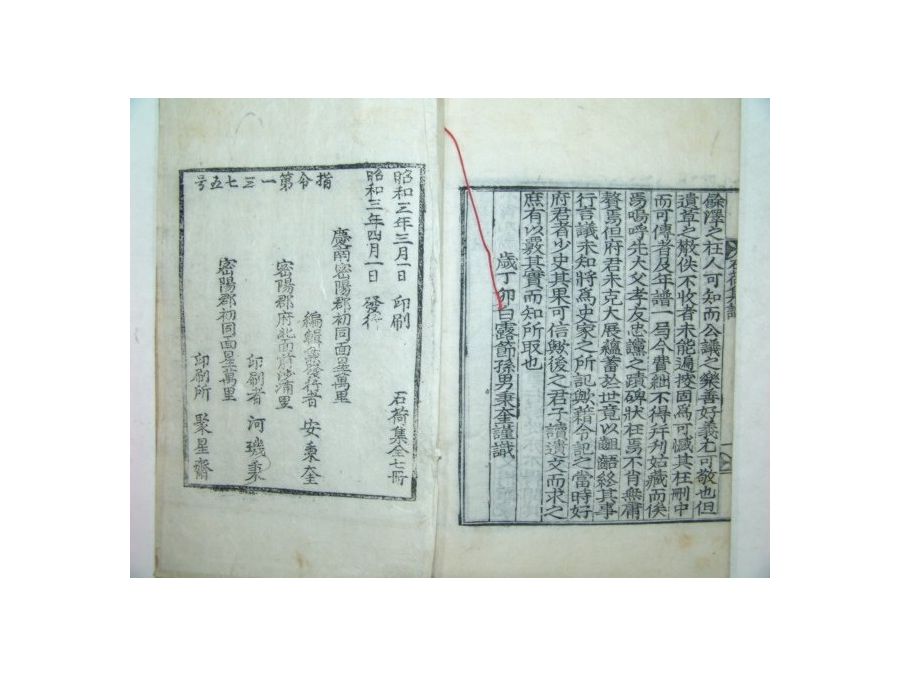 餘澤之在人可知而公議之樂善好義尤可敬也但
遺草之散佚不收者未能遍搜固爲可憾其在刪中
而可傳者及年譜一局今費絀不得幷刊姑藏而俟
焉嗚呼先大父孝友忠讜之蹟碑狀在焉不肖無庸
贅焉但府君未克大展蘊蓄於世竟以齟齬終其事
行言議未知將爲史家之所記歟藉令記之當時好
府君者少史其果可信歟後之君子讀遺文而求之
庶有以覈其實而知所取也
歲丁卯白露節孫男秉奎謹識
指令第一三七五号
昭和三年三月一日 印刷
昭和三年四月一日 發行
石荷集全七冊
慶南密陽郡初同面星萬里
編輯兼發行者 安秉奎
密陽郡府北面
印刷者 河璣秉
密陽郡初同面星萬里
印刷所 聚星齋